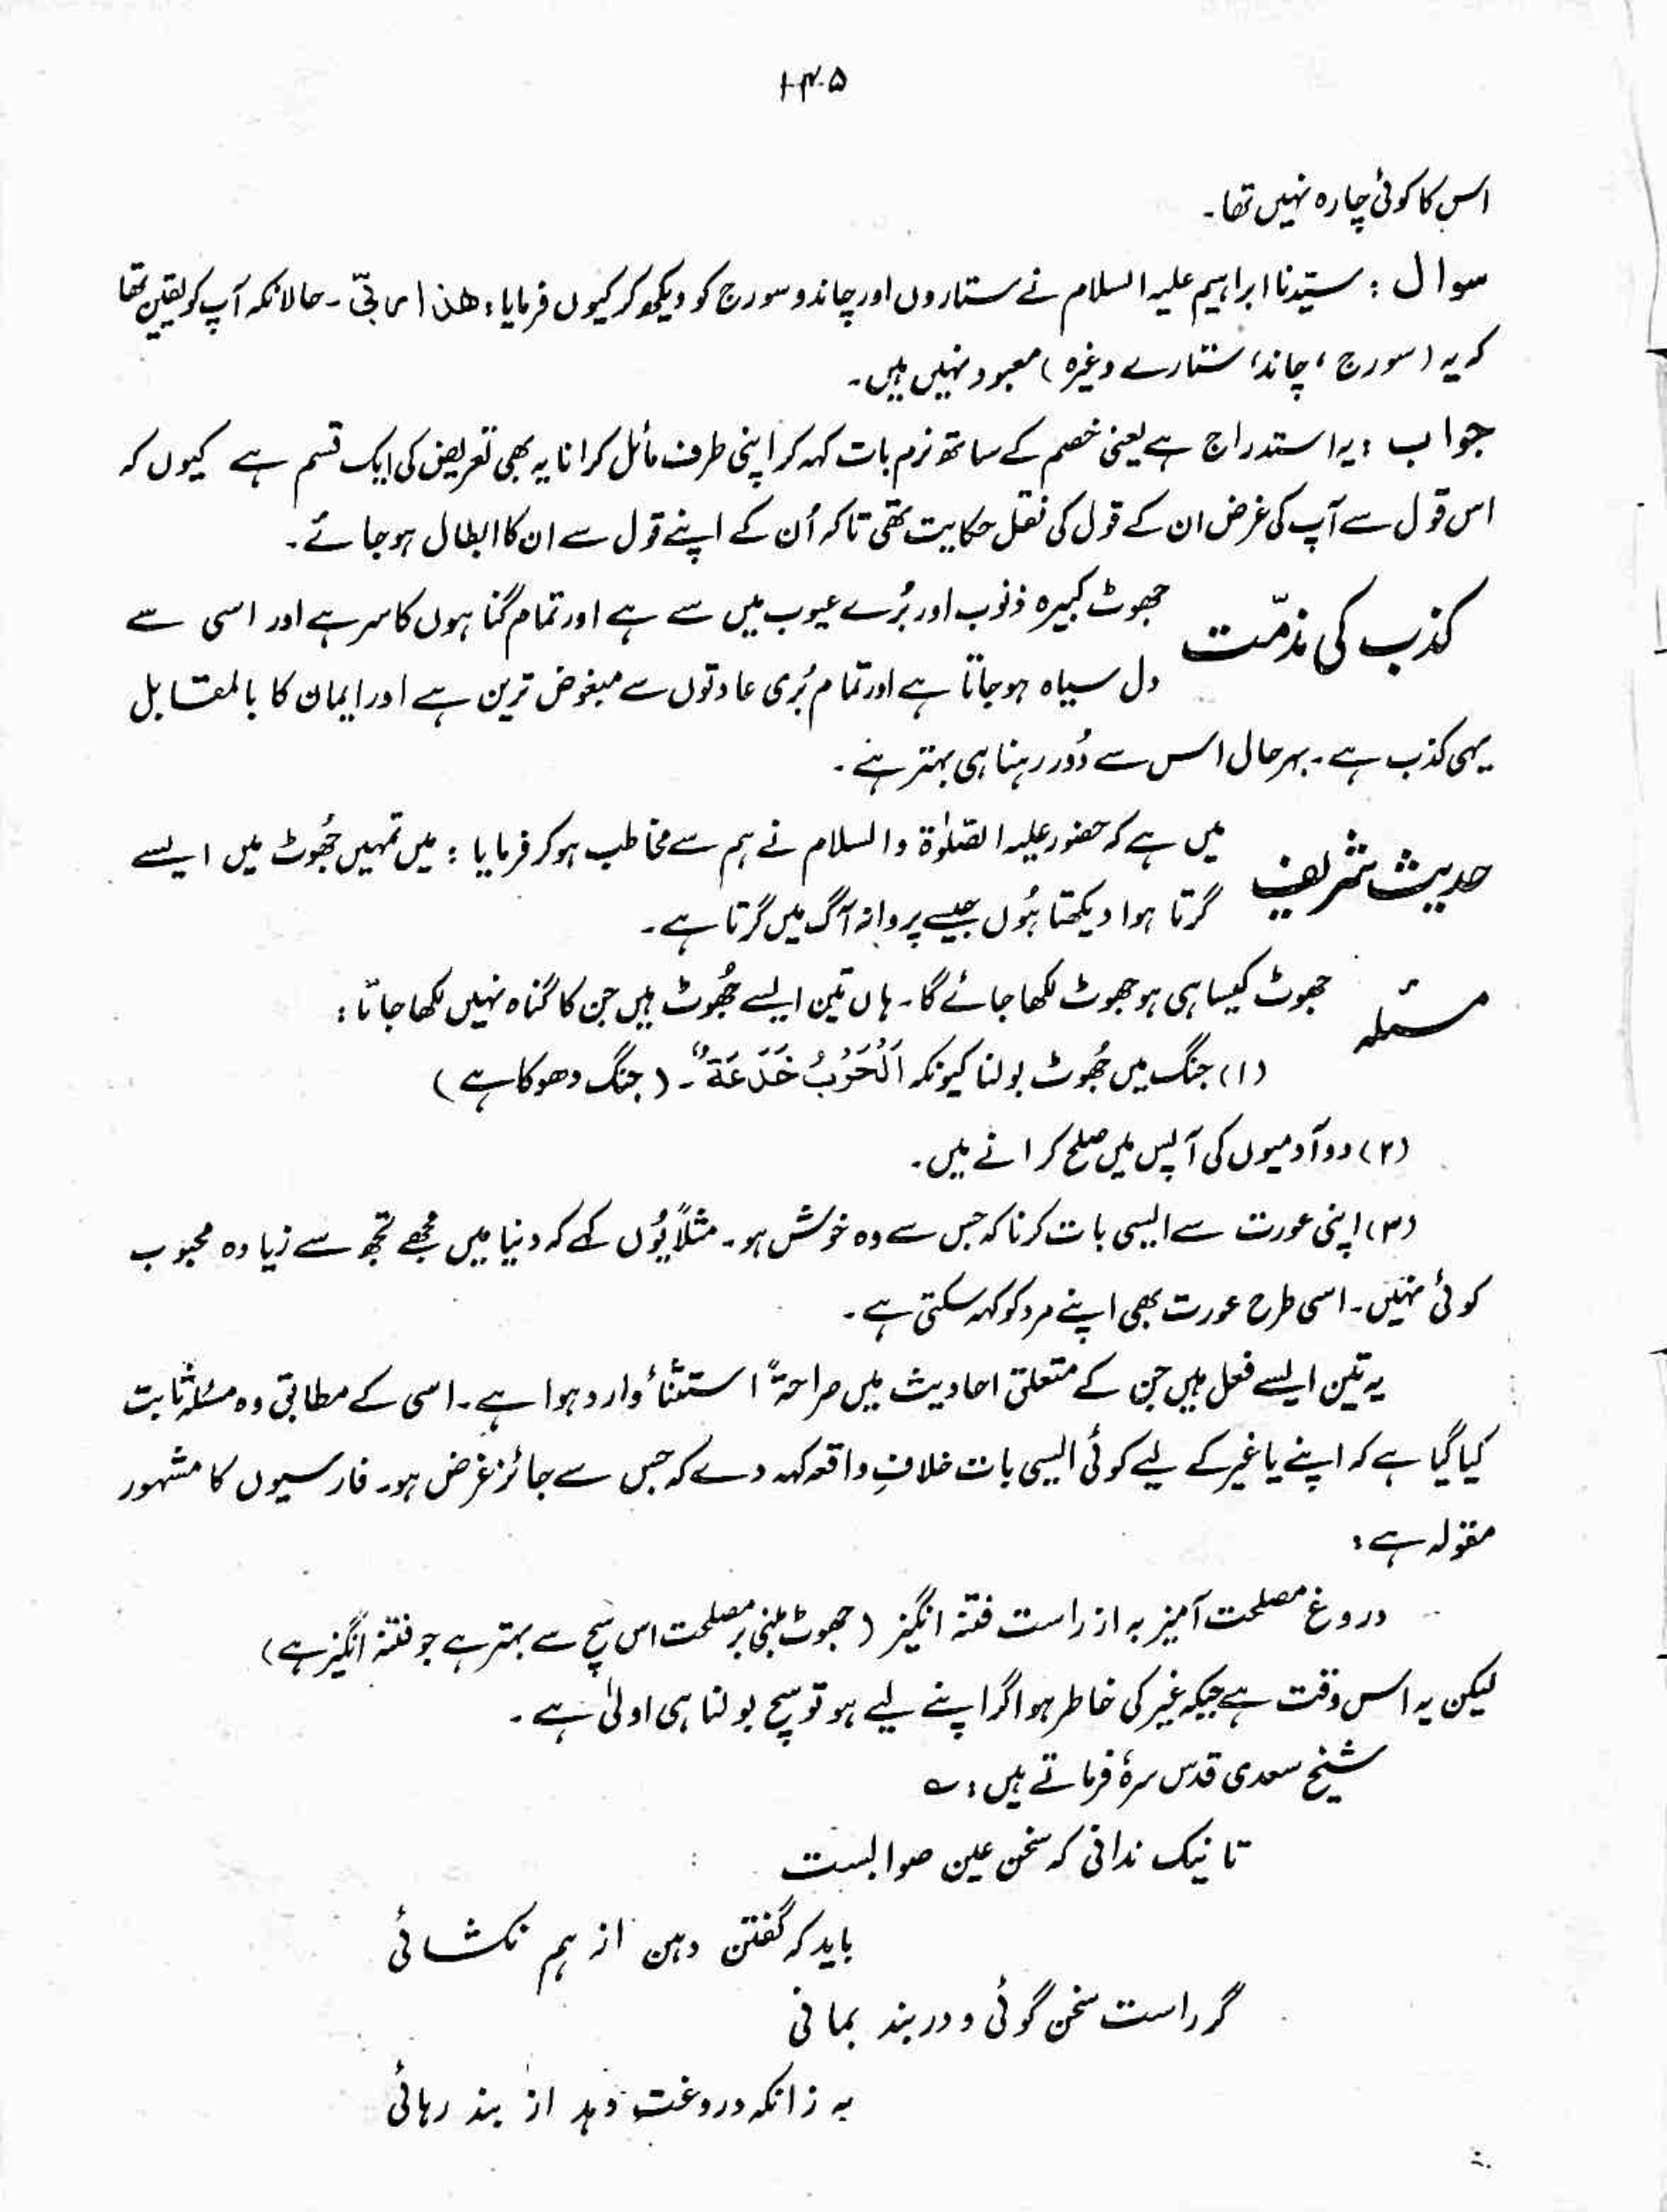 ۱۴۵
اس کا کوئی چارہ نہیں تھا۔
سوال : سیّدنا ابراہیم علیہ السلام نے ستاروں اور چاند و سورج کو دیکھ کر کیوں فرمایا : ھٰذا ربّی ۔ حالانکہ آپ کو یقین تھا
کہ یہ (سورج ، چاند، ستارے وغیرہ) معبود نہیں ہیں۔
جواب : یہ استدراج ہے یعنی خصم کے ساتھ نرم بات کہہ کر اپنی طرف مائل کرانا یہ بھی تعریض کی ایک قسم ہے کیوں کہ
اس قول سے آپ کی غرض ان کے قول کی نقل حکایت تھی تاکہ اُن کے اپنے قول سے ان کا ابطال ہوجائے۔
کذب کی مذمّت جھوٹ کبیرہ ذنوب اور بُرے عیوب میں سے ہے اور تمام گناہوں کا سر ہے اور اسی سے
دل سیاہ ہوجاتا ہے اور تمام بُری عادتوں سے مبغوض ترین ہے اور ایمان کا بالمقابل
یہی کذب ہے ۔ بہرحال اس سے دُور رہنا ہی بہتر ہے ۔
حدیث شریف میں ہے کہ حضور علیہ الصّلوٰۃ والسلام نے ہم سے مخاطب ہوکر فرمایا : میں تمہیں جُھوٹ میں ایسے
گرتا ہوا دیکھتا ہُوں جیسے پروانہ آگ میں گرتا ہے۔
مسئلہ جھوٹ کیسا ہی ہو جھوٹ لکھا جائے گا۔ ہاں تین ایسے جُھوٹ ہیں جن کا گناہ نہیں لکھا جاتا :
(۱) جنگ میں جُھوٹ بولنا کیونکہ اَلْحَرْبُ خَدَعَةٌ ۔ (جنگ دھوکا ہے)
(۲) دو آدمیوں کی آپس میں صلح کرانے میں۔
(۳) اپنی عورت سے ایسی بات کرنا کہ جس سے وہ خوش ہو۔ مثلاً یُوں کہے کہ دنیا میں مجھے تجھ سے زیادہ محبوب
کوئی نہیں۔ اسی طرح عورت بھی اپنے مرد کو کہہ سکتی ہے۔
یہ تین ایسے فعل ہیں جن کے متعلق احادیث میں صراحۃً استثنأ وارد ہوا ہے۔ اسی کے مطابق وہ مسئلہ ثابت
کیا گیا ہے کہ اپنے یا غیر کے لیے کوئی ایسی بات خلافِ واقعہ کہہ دے کہ جس سے جائز غرض ہو۔ فارسیوں کا مشہور
مقولہ ہے :
دروغ مصلحت آمیز بہ از راست فتنہ انگیز (جھوٹ مبنی بر مصلحت اس سچ سے بہتر ہے جو فتنہ انگیز ہے)
لیکن یہ اس وقت ہے جبکہ غیر کی خاطر ہو اگر اپنے لیے ہو تو سچ بولنا ہی اولیٰ ہے ۔
شیخ سعدی قدس سرہٗ فرماتے ہیں : ؎
تا نیک ندانی کہ سخن عین صوابست
باید کہ گفتن دہن از ہم نکشائی
گر راست سخن گوئی و در بند بمانی
بہ زانکہ دروغت دہد از بند رہائی